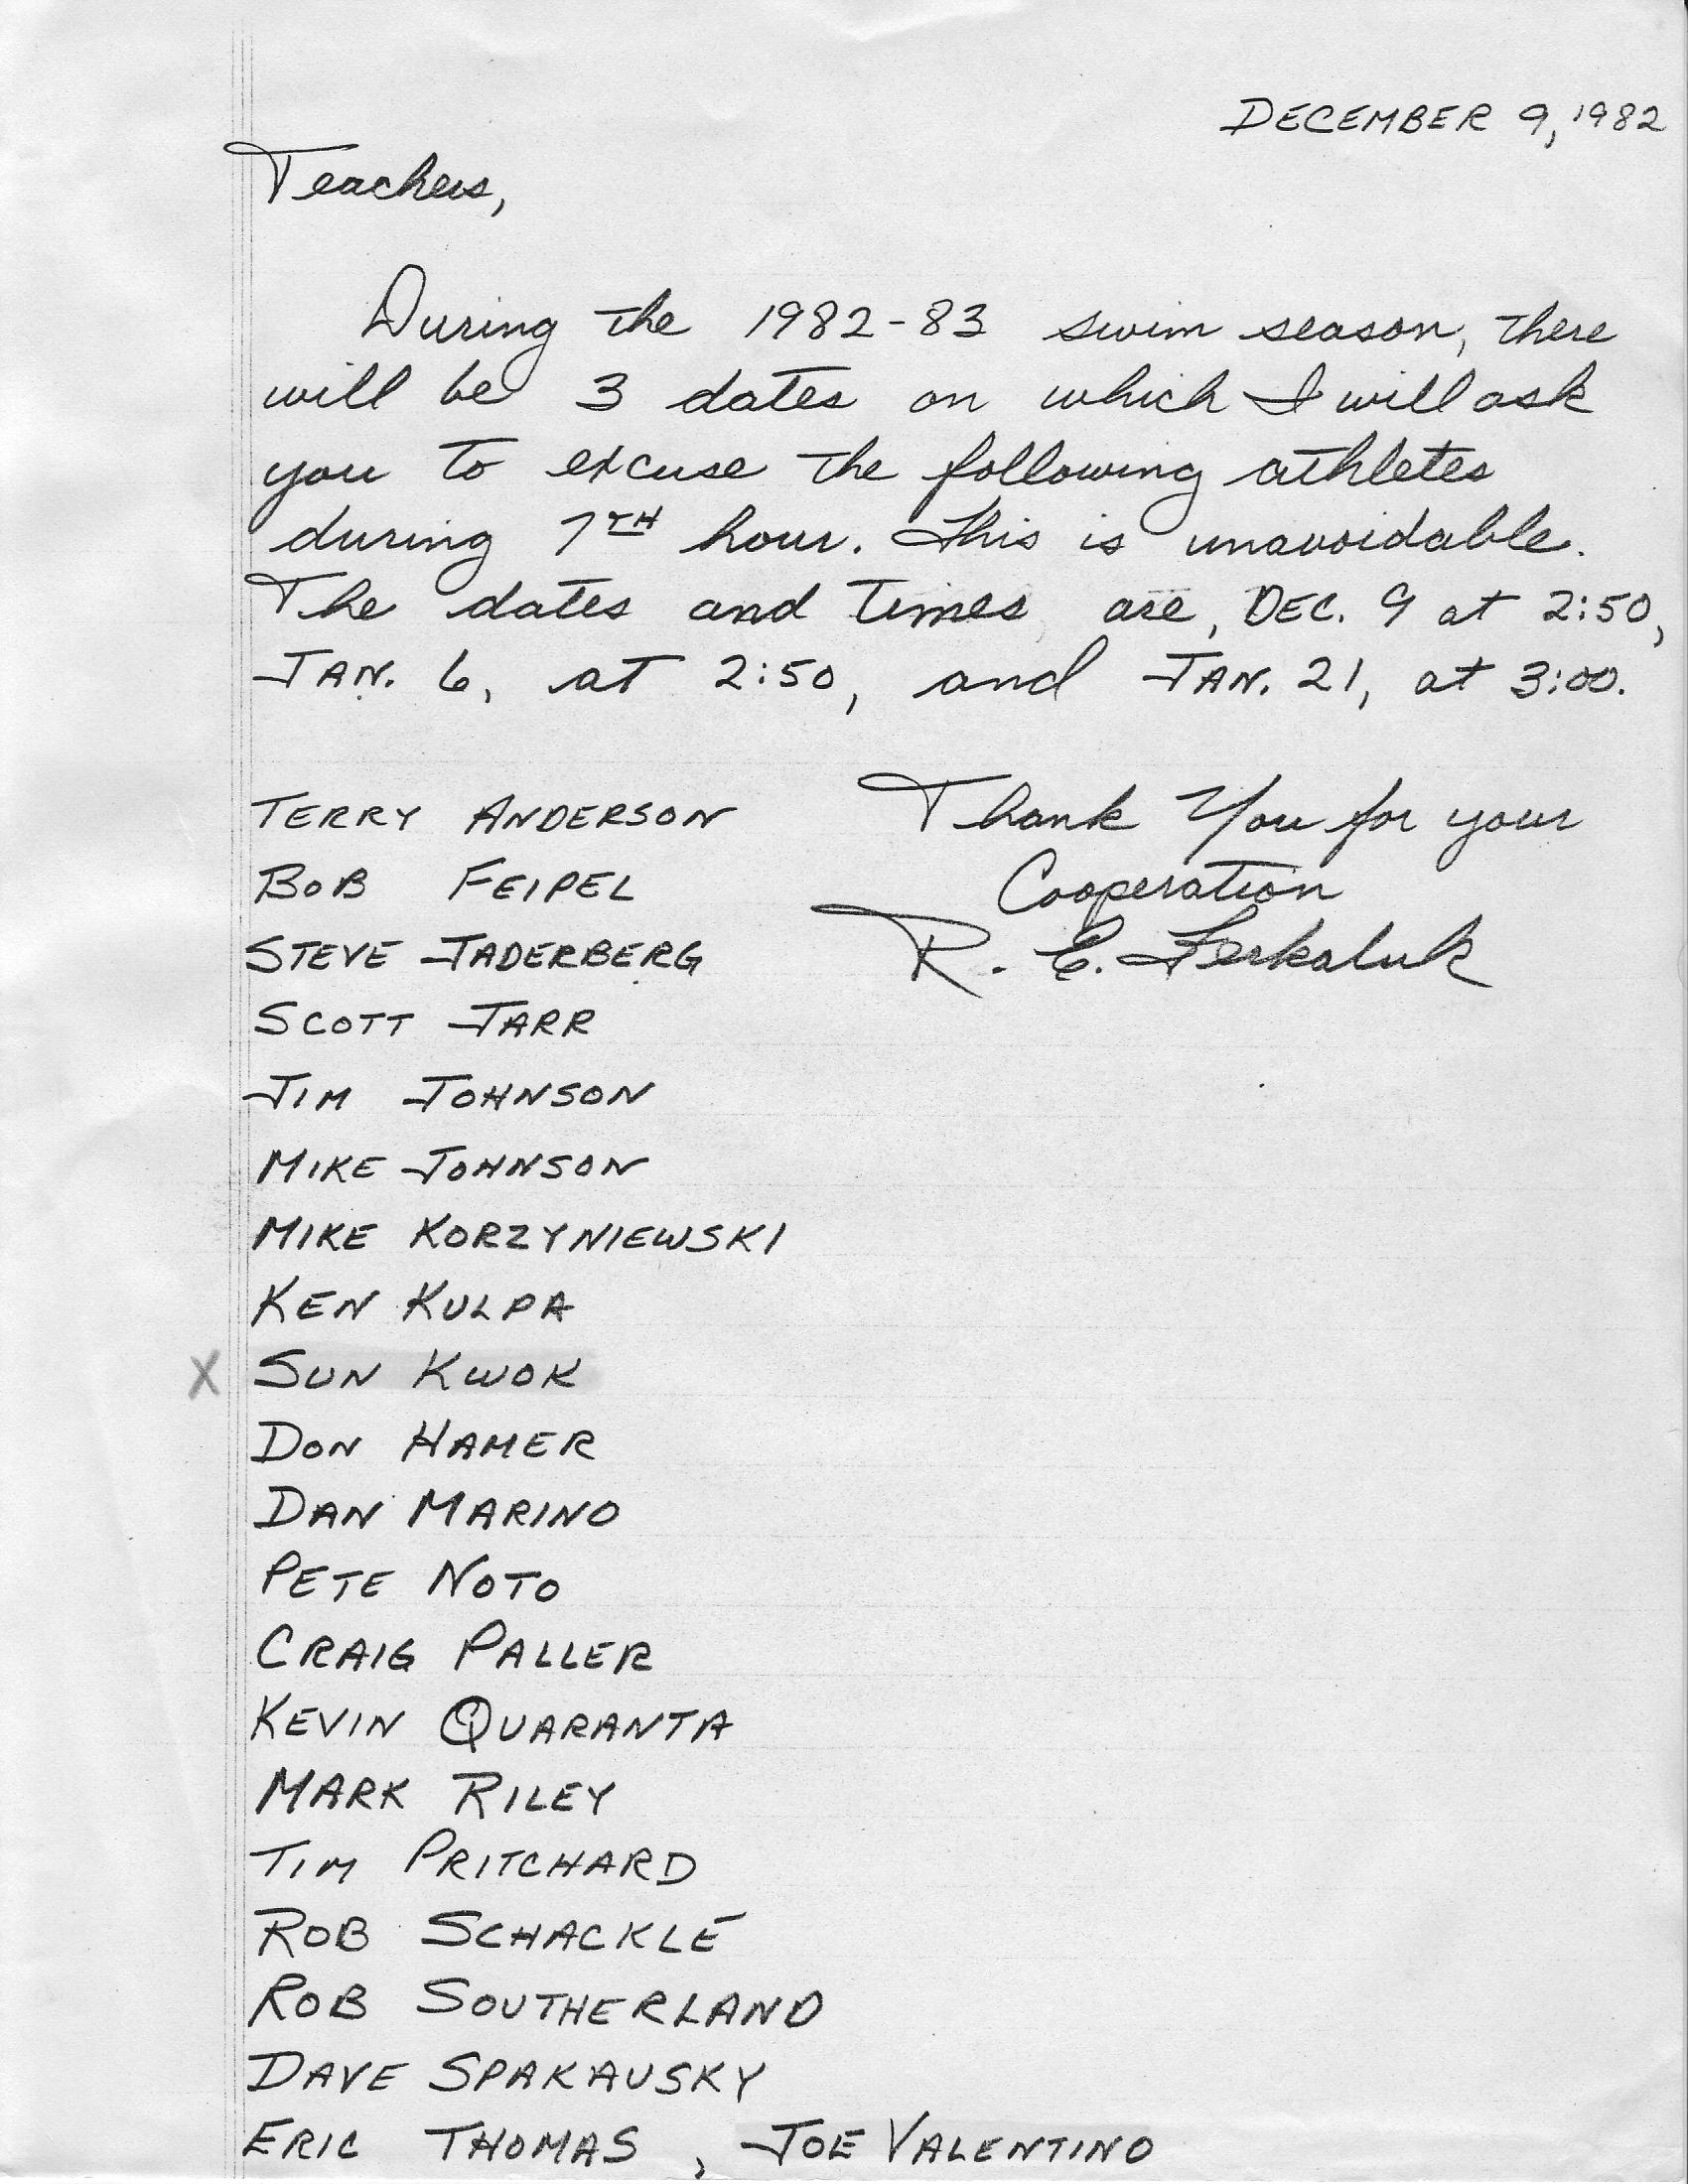 DECEMBER 9, 1982
Teachers,
During the 1982-83 swim season, there
will be 3 dates on which I will ask
you to excuse the following athletes
during 7TH hour. This is unavoidable.
The dates and times are, DEC. 9 at 2:50,
JAN. 6, at 2:50, and JAN. 21, at 3:00.
Thank You for your
Cooperation
R. E. Ferkaluk
TERRY ANDERSON
BOB FEIPEL
STEVE JADERBERG
SCOTT JARR
JIM JOHNSON
MIKE JOHNSON
MIKE KORZYNIEWSKI
KEN KULPA
X SUN KWOK
DON HAMER
DAN MARINO
PETE NOTO
CRAIG PALLER
KEVIN QUARANTA
MARK RILEY
TIM PRITCHARD
ROB SCHACKLE
ROB SOUTHERLAND
DAVE SPAKAUSKY
ERIC THOMAS, JOE VALENTINO